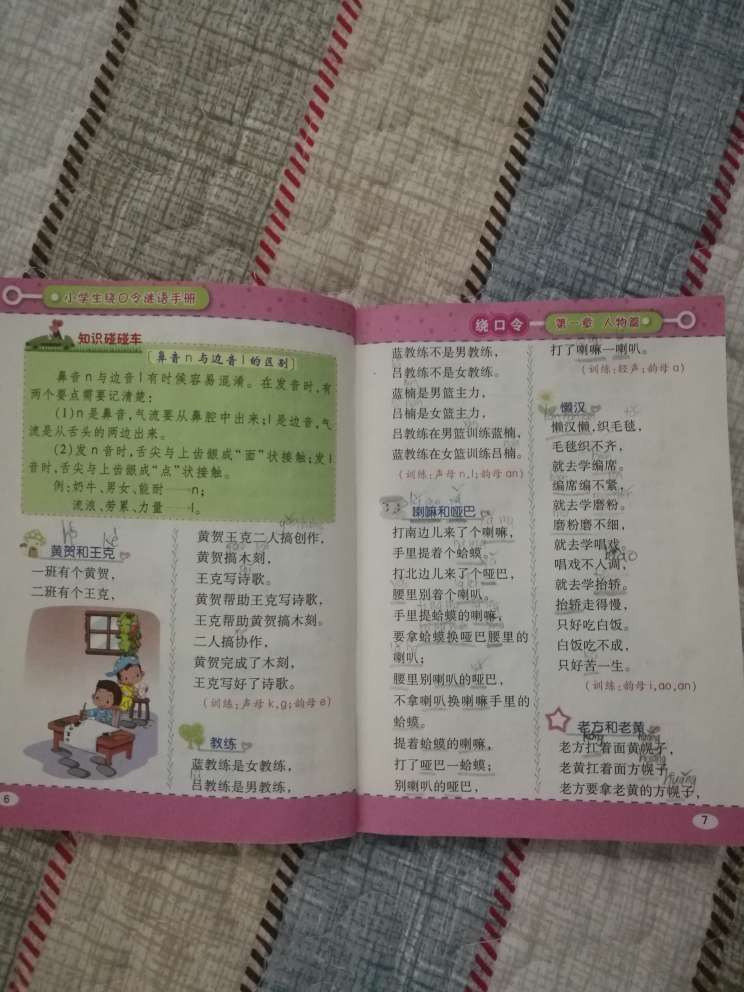 小学生绕口令谜语手册
知识碰碰车
鼻音n与边音l的区别
鼻音n与边音l有时候容易混淆。在发音时,有
两个要点需要记清楚:
(1)n是鼻音,气流要从鼻腔中出来;l是边音,气
流是从舌头的两边出来。
(2)发n音时,舌尖与上齿龈成“面”状接触;发l
音时,舌尖与上齿龈成“点”状接触。
例:奶牛、男女、能耐——n;
流浪、劳累、力量——l。
黄贺和王克
一班有个黄贺,
二班有个王克,
黄贺王克二人搞创作,
黄贺搞木刻,
王克写诗歌。
黄贺帮助王克写诗歌,
王克帮助黄贺搞木刻。
二人搞协作,
黄贺完成了木刻,
王克写好了诗歌。
(训练:声母k,g;韵母e)
教练
蓝教练是女教练,
吕教练是男教练,
6
绕口令
第一章 人物篇
蓝教练不是男教练,
吕教练不是女教练。
蓝楠是男篮主力,
吕楠是女篮主力,
吕教练在男篮训练蓝楠,
蓝教练在女篮训练吕楠。
(训练:声母n,l;韵母an)
喇嘛和哑巴
打南边儿来了个喇嘛,
手里提着个蛤蟆。
打北边儿来了个哑巴,
腰里别着个喇叭。
手里提蛤蟆的喇嘛,
要拿蛤蟆换哑巴腰里的
喇叭;
腰里别喇叭的哑巴,
不拿喇叭换喇嘛手里的
蛤蟆。
提着蛤蟆的喇嘛,
打了哑巴一蛤蟆;
别喇叭的哑巴,
打了喇嘛一喇叭。
(训练:轻声;韵母a)
懒汉
懒汉懒,织毛毯,
毛毯织不齐,
就去学编席。
编席编不紧,
就去学磨粉。
磨粉磨不细,
就去学唱戏。
唱戏不入调,
就去学抬轿。
抬轿走得慢,
只好吃白饭。
白饭吃不成,
只好苦一生。
(训练:韵母i,ao,an)
老方和老黄
老方扛着面黄幌子,
老黄扛着面方幌子,
老方要拿老黄的方幌子,
7